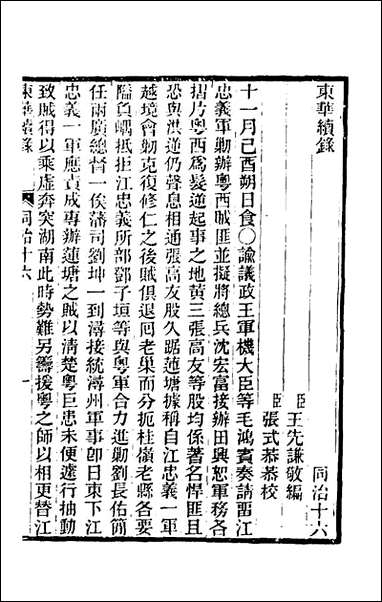 東華續錄
同治十六
臣王先謙敬編
臣張式恭恭校
十一月己酉朔日食○諭議政王軍機大臣等毛鴻賓奏請畱江
忠義軍勦辦粵西賊匪並擬將總兵沈宏富接辦田興恕軍務各
摺片粵西爲髮逆起事之地黃三張高友等股均係著名悍匪且
恐與洪逆仍聲息相通張高友股久踞蓮塘據稱自江忠義一軍
越境會勦克復修仁之後賊俱退囘老巢而分扼桂嶺老縣各要
隘負嵎抵拒江忠義所部鄧子垣等與粵軍合力進勦劉長佑簡
任兩廣總督一俟藩司劉坤一到潯接統潯州軍事卽日東下江
忠義一軍應責成專辦蓮塘之賊以清楚粵巨患未便遽行抽動
致賊得以乘虛奔突湖南此時勢難另籌援粵之師以相更替江
東華續錄
同治十六
一